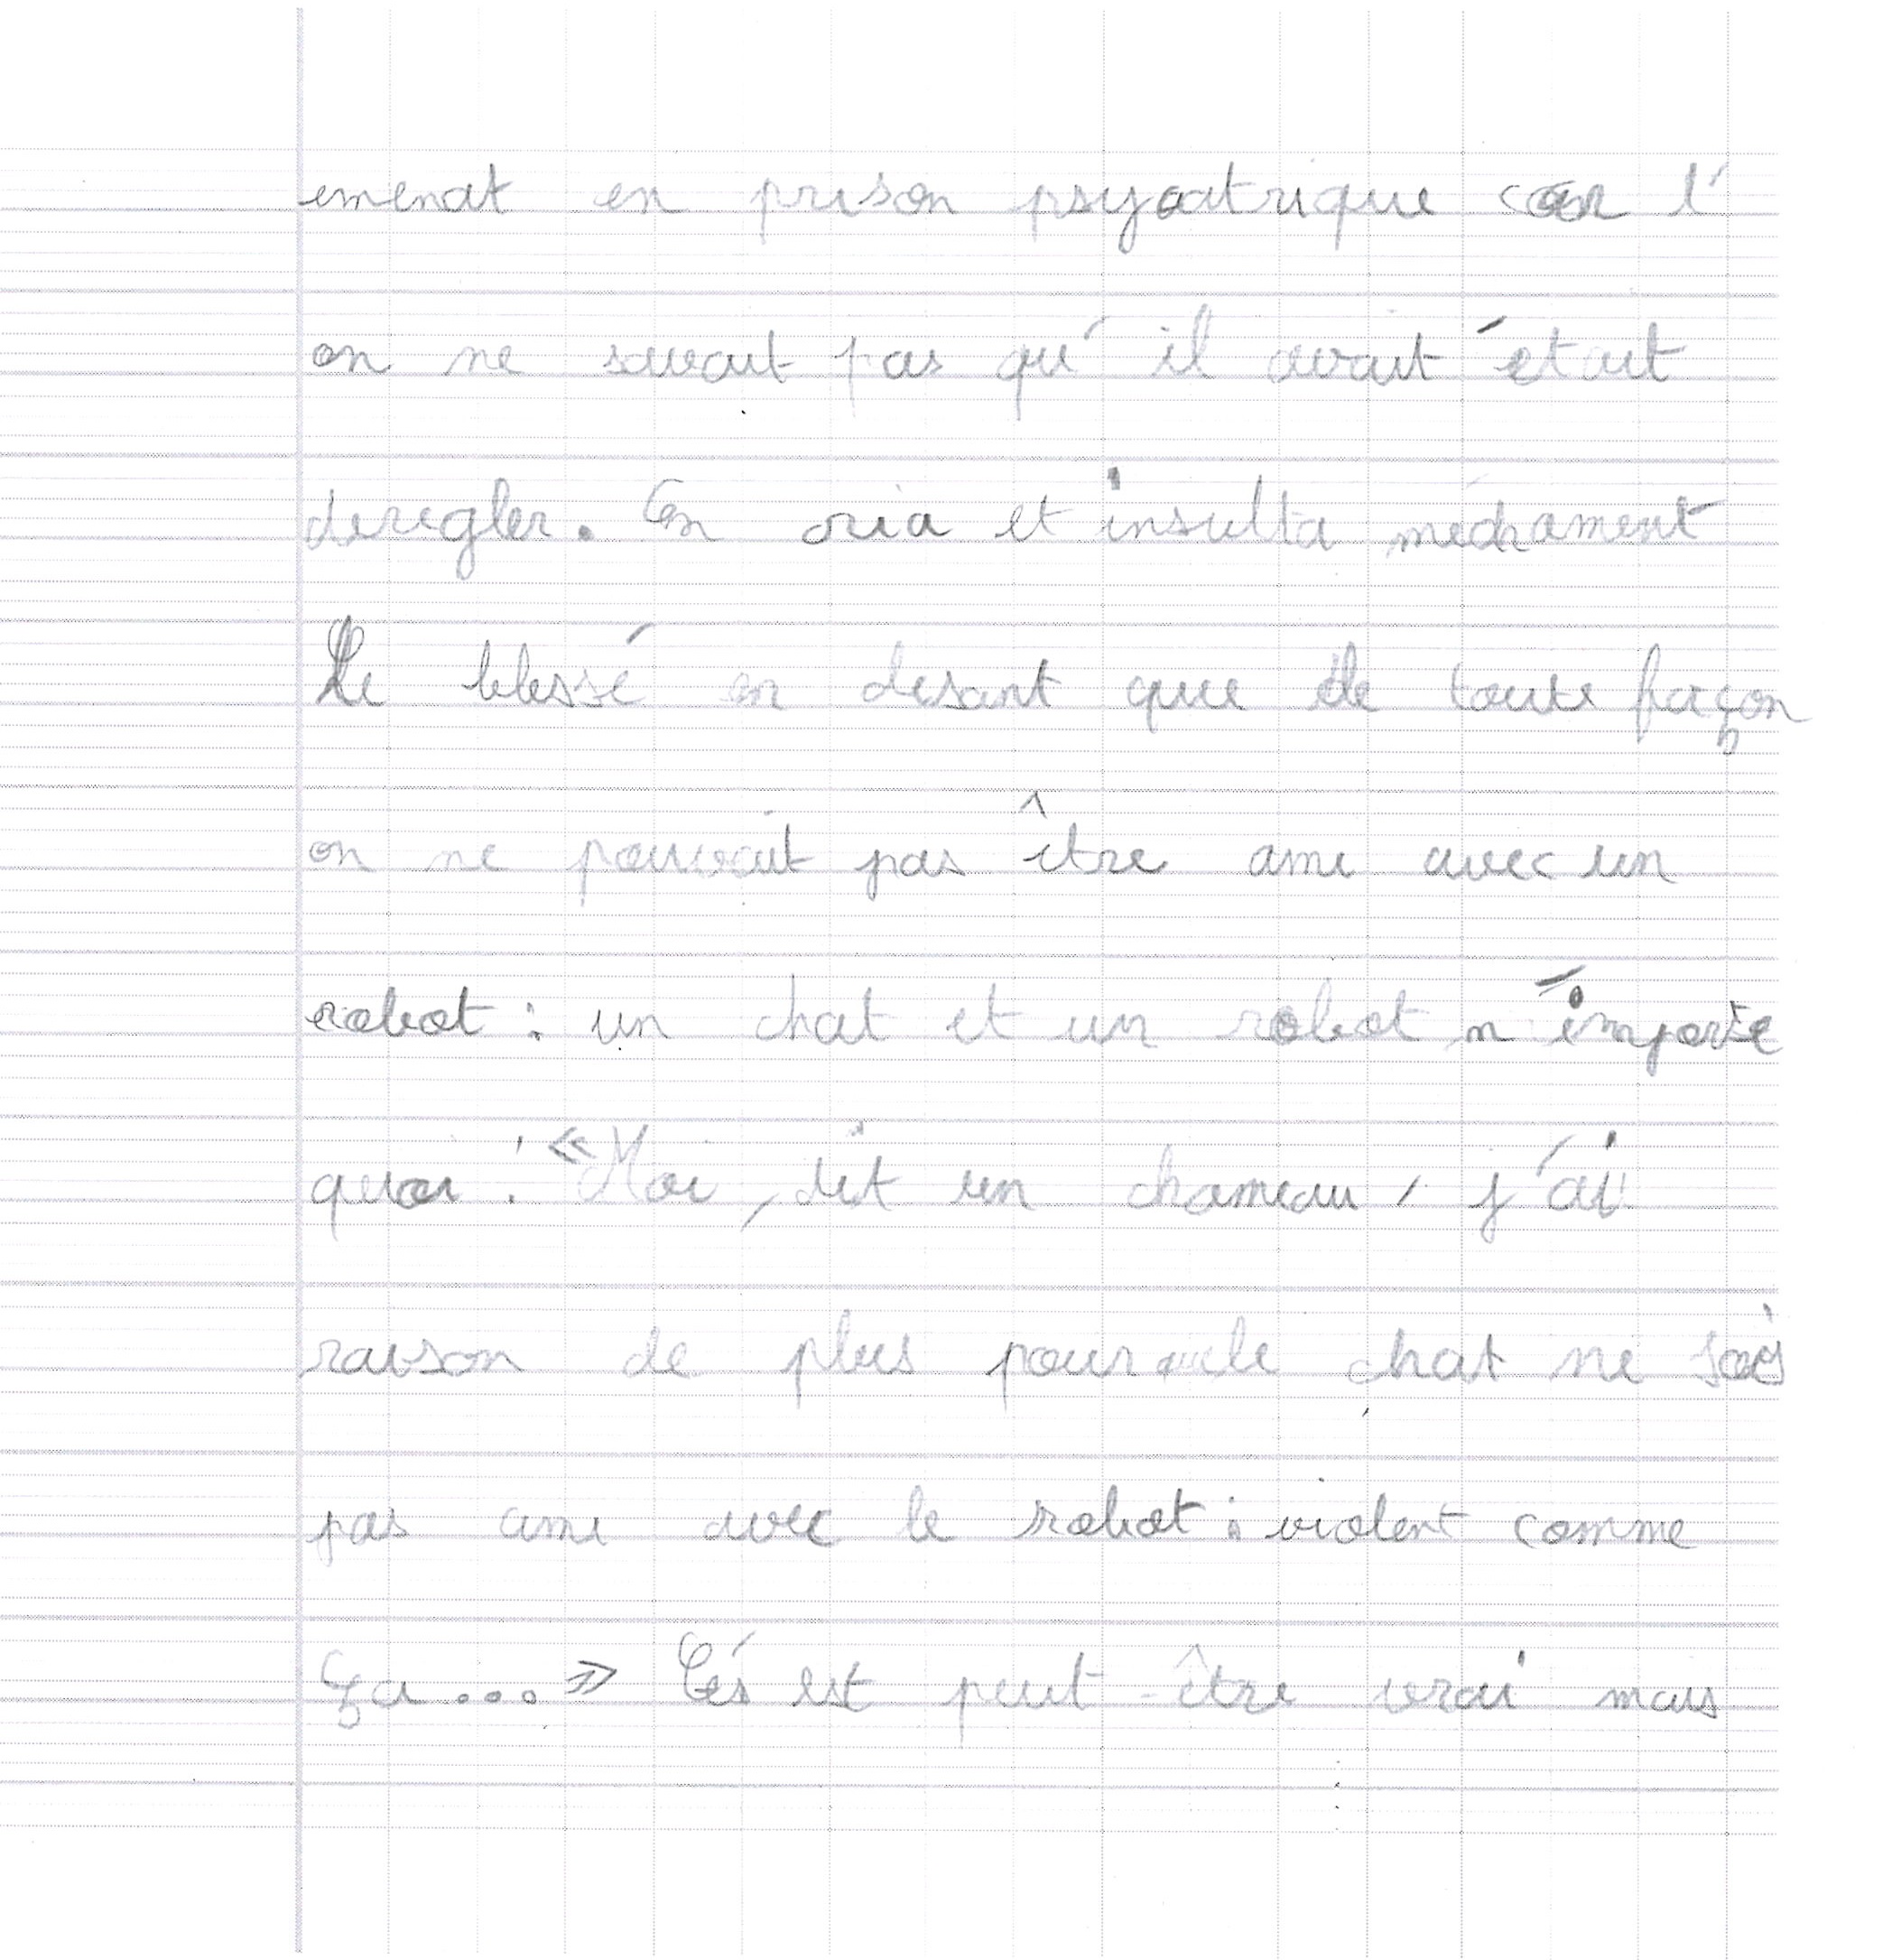 emenat en prison psycatrique car l'
on ne savait pas qu'il avait était
deregler. On cria et insulta méchament
Le blessé en disant que de toute façon
on ne pouvait pas être ami avec un
robot : un chat et un robot n'importe
quoi ! « Moi, dit un chameau, j'ai
raison de plus pour que le chat ne sois
pas ami avec le robot : violent comme
ça... » C'es est peut-être vrai mais